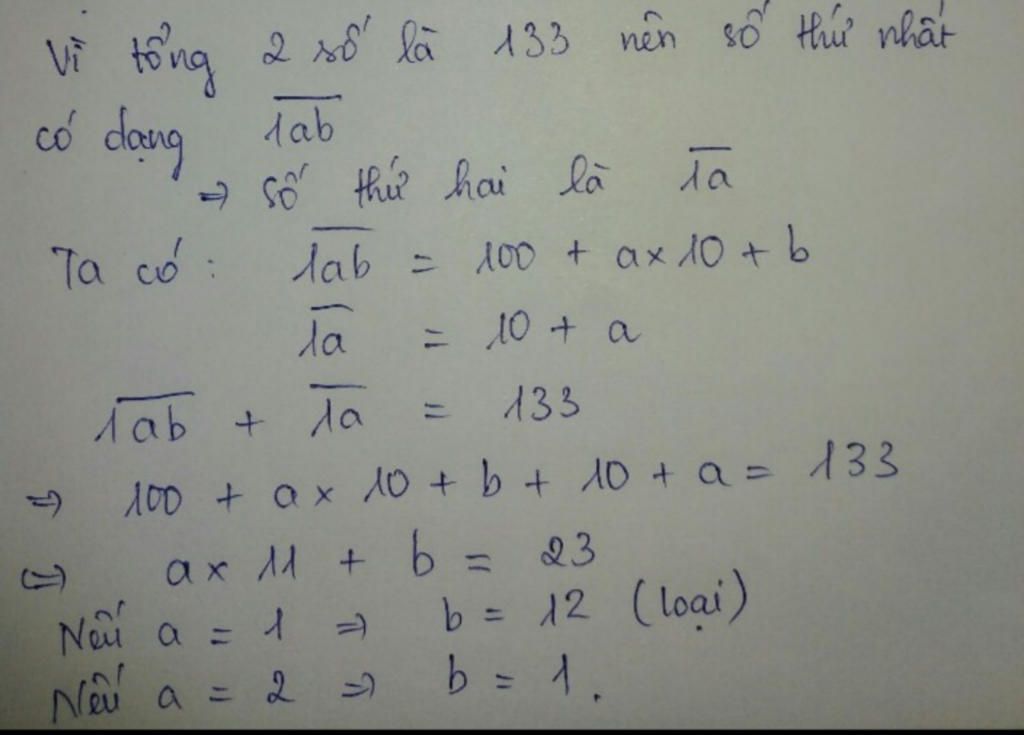 Vì tổng 2 số là 133 nên số thứ nhất
có dạng 1ab
=> số thứ hai là 1a
Ta có : 1ab = 100 + a x 10 + b
1a = 10 + a
1ab + 1a = 133
=> 100 + a x 10 + b + 10 + a = 133
<=> a x 11 + b = 23
Nếu a = 1 => b = 12 (loại)
Nếu a = 2 => b = 1.